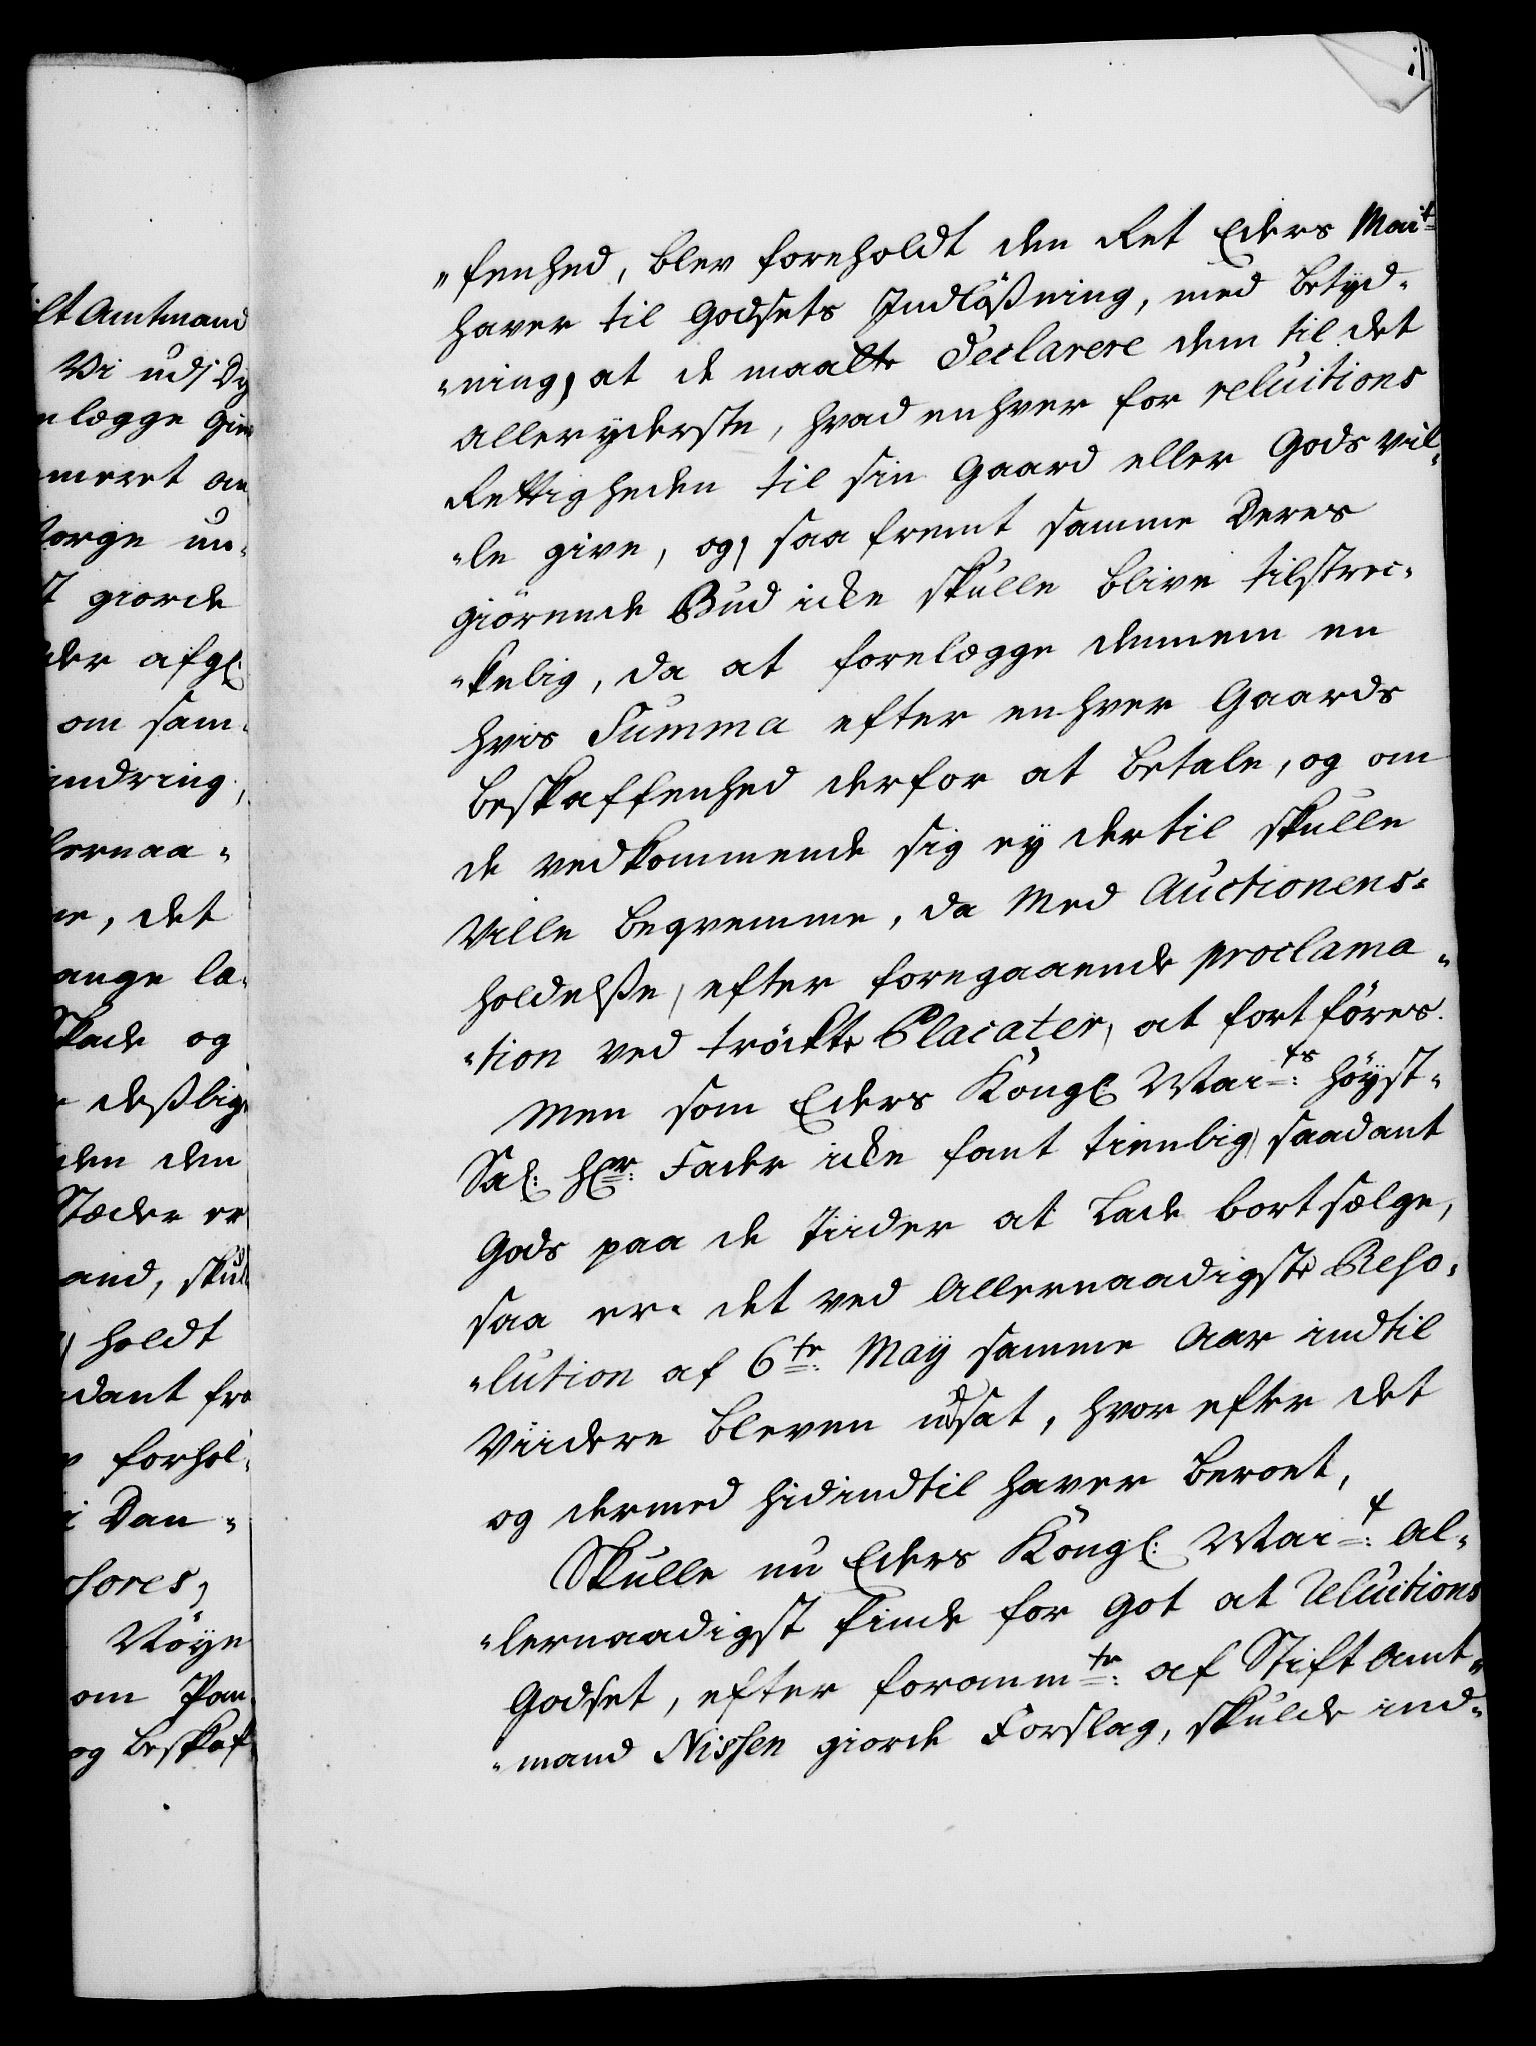 ilt Amtmand
Vi udj Dy
nlægge Gie
meret an
Norge un-
giorde
der afgl:
om sam-
indring,
lernaa-
ne, det
ange la-
Skade og
deßlige
den den
Stæder er
and, skul
holdt
dant fra
forhol-
i Dan-
sores,
Nöye
om Pan-
og beskaf
"fenhed, blev foreholdt den Ret Eders Mait:
haver til Godsets Jndlößning, med betyd-
"ning, at de maatte Declarere dem til det
alleryderste, hvad enhver for reluitions
Rettigheden til sin Gaard eller Gods vil-
"le give, og, saa fremt samme Deres
giörende Bud icke skulle blive tilstrec-
"kelig, da at forelægge dennem en
hvis Summa efter enhver Gaards
beskaffenhed derfor at betale, og om
de vedkommende sig ey dertil skulle
Ville beqvemme, da Med Auctionens-
holdelße, efter foregaaende proclama-
"tion ved tröckte Placater, at fortföres.
Men som Eders Kongl: Maits: höyst-
Sal: Hr: Fader icke fant tienlig, saadant
Gods paa de Tiider at Lade bortsælge,
saa er det ved Allernaadigste Reso-
"lution af 6te: Maÿ samme Aar indtil
Viidere bleven udsat, hvor efter det
og dermed hidindtil haver beroet,
Skulle nu Eders Kongl: Mait: Al-
"lernaadigst finde for Got at Reluitions
Godset, efter forommte: af Stift Amt-
"mand Nissen giorde Forslag, skulde ind-